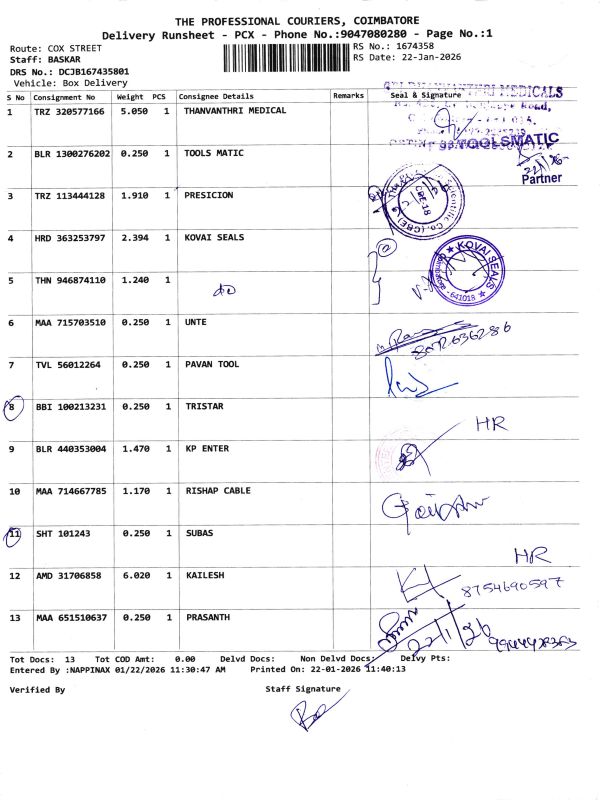 THE PROFESSIONAL COURIERS, COIMBATORE
Delivery Runsheet - PCX - Phone No.:9047080280 - Page No.:1
Route: COX STREET
RS No.: 1674358
Staff: BASKAR
RS Date: 22-Jan-2026
DRS No.: DCJB167435801
Vehicle: Box Delivery
S No Consignment No Weight PCS Consignee Details Remarks Seal & Signature
1 TRZ 320577166 5.050 1 THANVANTHRI MEDICAL
MEDICALS
Road,
2 BLR 1300276202 0.250 1 TOOLS MATIC
TOOLSMATIC
Partner
3 TRZ 113444128 1.910 1 PRESICION
CBE-18
4 HRD 363253797 2.394 1 KOVAI SEALS
KOVAI SEALS
641018
5 THN 946874110 1.240 1
do
6 MAA 715703510 0.250 1 UNTE
8072636286
7 TVL 56012264 0.250 1 PAVAN TOOL
8 BBI 100213231 0.250 1 TRISTAR
HR
9 BLR 440353004 1.470 1 KP ENTER
10 MAA 714667785 1.170 1 RISHAP CABLE
11 SHT 101243 0.250 1 SUBAS
HR
12 AMD 31706858 6.020 1 KAILESH
8754690597
13 MAA 651510637 0.250 1 PRASANTH
22/1/26
Tot Docs: 13 Tot COD Amt: 0.00 Delvd Docs: Non Delvd Docs: Delvy Pts:
Entered By :NAPPINAX 01/22/2026 11:30:47 AM Printed On: 22-01-2026 11:40:13
Verified By
Staff Signature